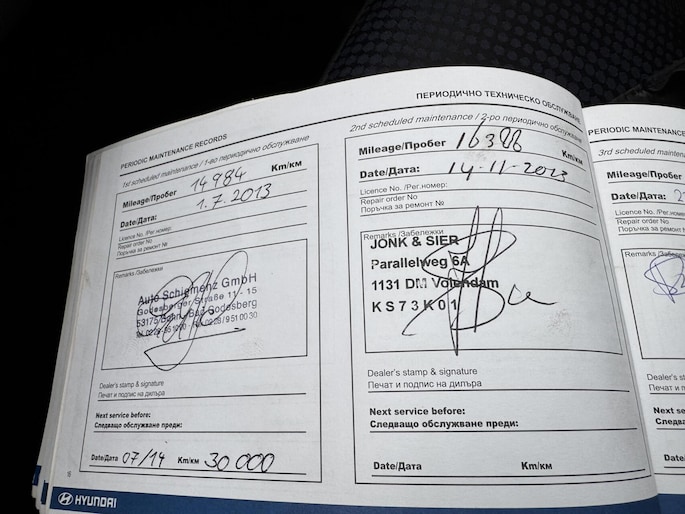 PERIODIC MAINTENANCE RECORDS
1st scheduled maintenance / 1-во периодично обслужване
Mileage/Пробег 14984 Km/км
Date/Дата: 1.7.2013
Licence No. /Рег.номер:
Repair order No
Поръчка за ремонт №
Remarks /Забележки
Auto Schiemenz GmbH
Godesberger Straße 11 - 15
53175 Bonn - Bad Godesberg
Dealer's stamp & signature
Печат и подпис на дилъра
Next service before:
Следващо обслужване преди:
Date/Дата 07/14 Km/км 30 000
6
HYUNDAI
ПЕРИОДИЧНО ТЕХНИЧЕСКО ОБСЛУЖВАНЕ
2nd scheduled maintenance / 2-ро периодично обслужване
Mileage/Пробег 16388 Km/км
Date/Дата: 14-11-2013
Licence No. /Рег.номер:
Repair order No
Поръчка за ремонт №
Remarks /Забележки
JONK & SIER
Parallelweg 6A
1131 DM Volendam
KS73K01
Dealer's stamp & signature
Печат и подпис на дилъра
Next service before:
Следващо обслужване преди:
Date/Дата Km/км
PERIODIC MAINTENANCE
3rd scheduled mainten
Mileage/Пробег
Date/Дата: 2
Licence No. /Рег.номер:
Repair order No
Поръчка за ремонт №
Remarks /Забележки
Dealer's st
Печат и по
Next serv
Следващ
Date/Дат